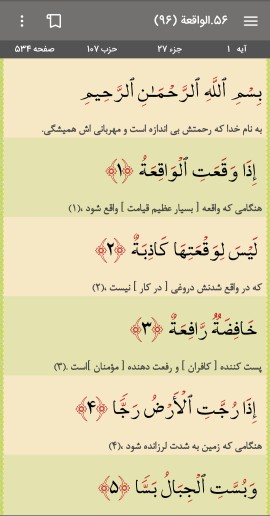 ۵۶.الواقعة (۹۶)
آیه ۱ جزء ۲۷ حزب ۱۰۷ صفحه ۵۳۴
بِسْمِ ٱللَّهِ ٱلرَّحْمَـٰنِ ٱلرَّحِيمِ
به نام خدا که رحمتش بی اندازه است و مهربانی اش همیشگی.
إِذَا وَقَعَتِ ٱلْوَاقِعَةُ ﴿۱﴾
هنگامی که واقعه [ بسیار عظیم قیامت ] واقع شود ،(۱)
لَيْسَ لِوَقْعَتِهَا كَاذِبَةٌ ﴿۲﴾
که در واقع شدنش دروغی [ در کار ] نیست ،(۲)
خَافِضَةٌ رَّافِعَةٌ ﴿۳﴾
پست کننده [ کافران ] و رفعت دهنده [ مؤمنان ]است .(۳)
إِذَا رُجَّتِ ٱلْأَرْضُ رَجًّا ﴿۴﴾
هنگامی که زمین به شدت لرزانده شود ،(۴)
وَبُسَّتِ ٱلْجِبَالُ بَسًّا ﴿۵﴾